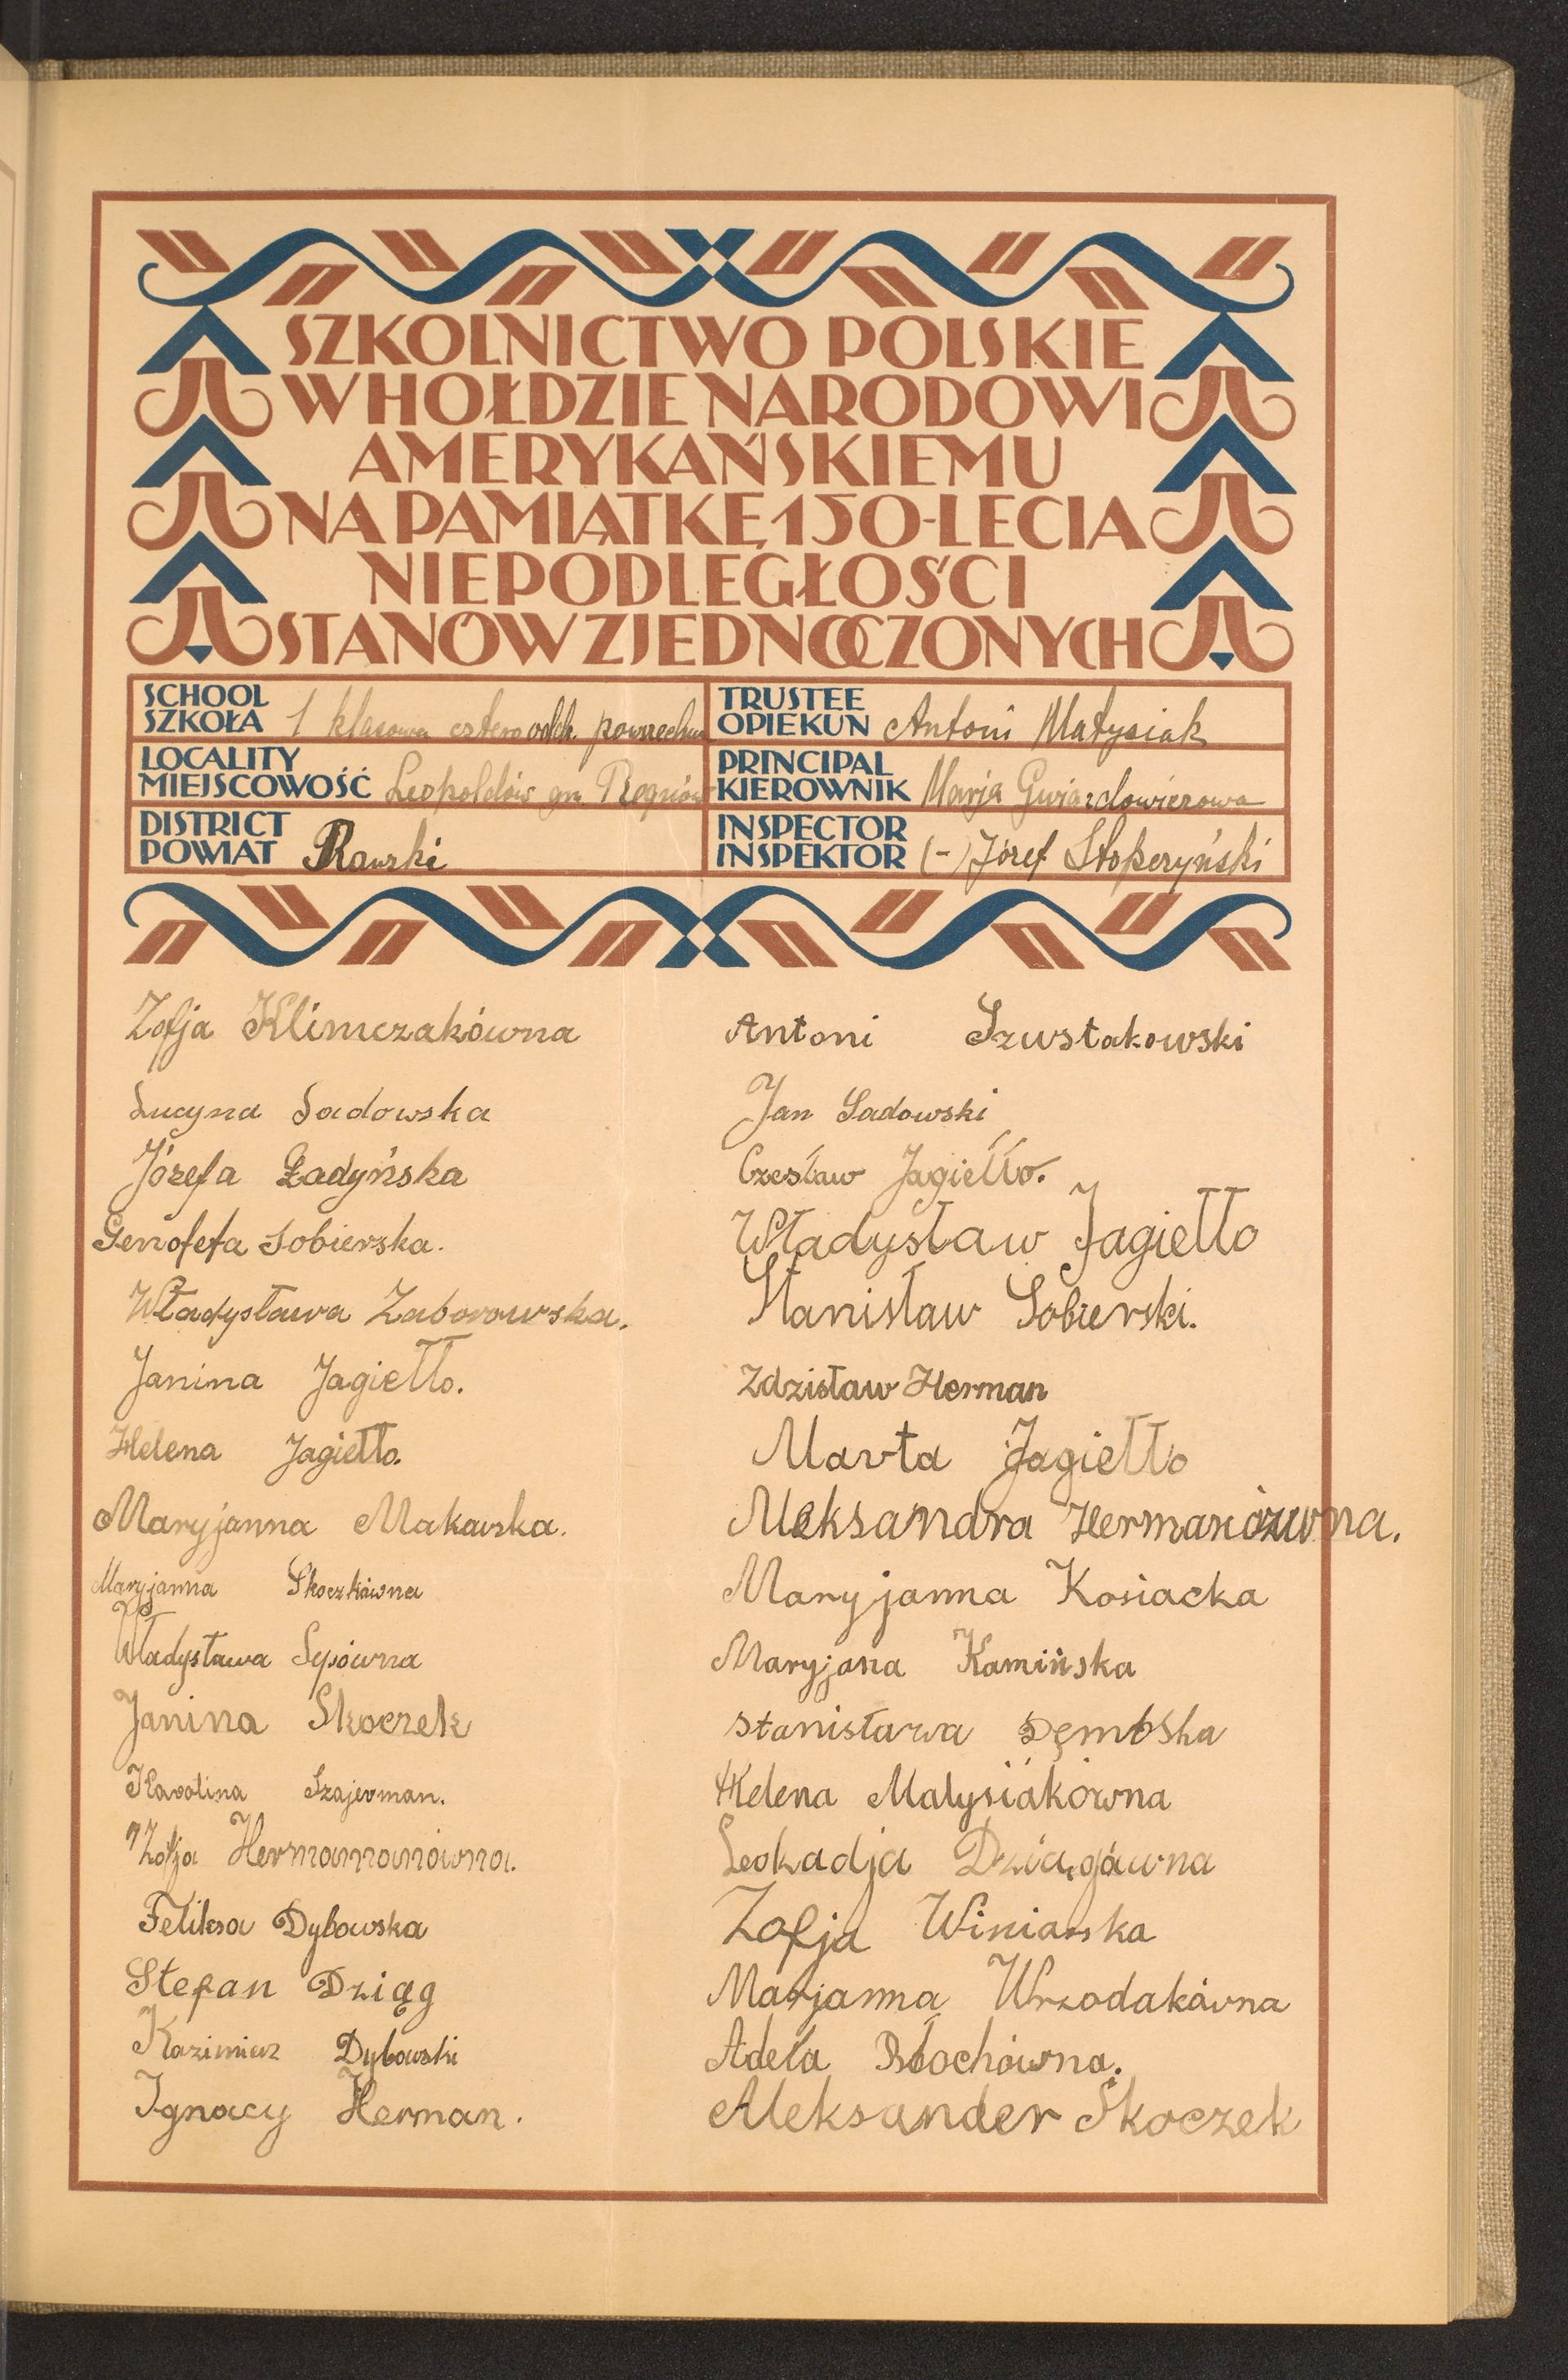 SZKOLNICTWO POLSKIE
W HOŁDZIE NARODOWI
AMERYKAŃSKIEMU
NA PAMIĄTKĘ 150-LECIA
NIEPODLEGŁOŚCI
STANÓW ZJEDNOCZONYCH
SCHOOL
SZKOŁA 1 klasowa cztero oddz. powszechna
LOCALITY
MIEJSCOWOŚĆ Leopoldów gm. Regnów
DISTRICT
POWIAT Rawski
TRUSTEE
OPIEKUN Antoni Matysiak
PRINCIPAL
KIEROWNIK Marja Gwiazdowiczowa
INSPECTOR
INSPEKTOR (-) Józef Stopczyński
Zofja Klimczakówna
Lucyna Sadowska
Józefa Ładyńska
Genofefa Sobierska.
Władysława Zaborowska.
Janina Jagiełło.
Helena Jagiełło.
Maryjanna Makawska.
Maryjanna Skoczkówna
Władysława Sysówna
Janina Skoczek
Karolina Szajerman.
Zofja Hermamanówna.
Feliksa Dybowska
Stefan Dziąg
Kazimierz Dybowski
Ignacy Herman.
Antoni Szustakowski
Jan Sadowski
Czesław Jagiełło.
Władysław Jagiełło
Stanisław Sobierski.
Zdzisław Herman
Marta Jagiełło
Aleksandra Hermanówna.
Maryjanna Kosiacka
Maryjana Kamińska
Stanisława Dęmbska
Helena Matysiakówna
Leokadja Dziągówna
Zofja Winiarska
Marjanna Wrzodakówna
Adela Błochówna.
Aleksander Skoczek